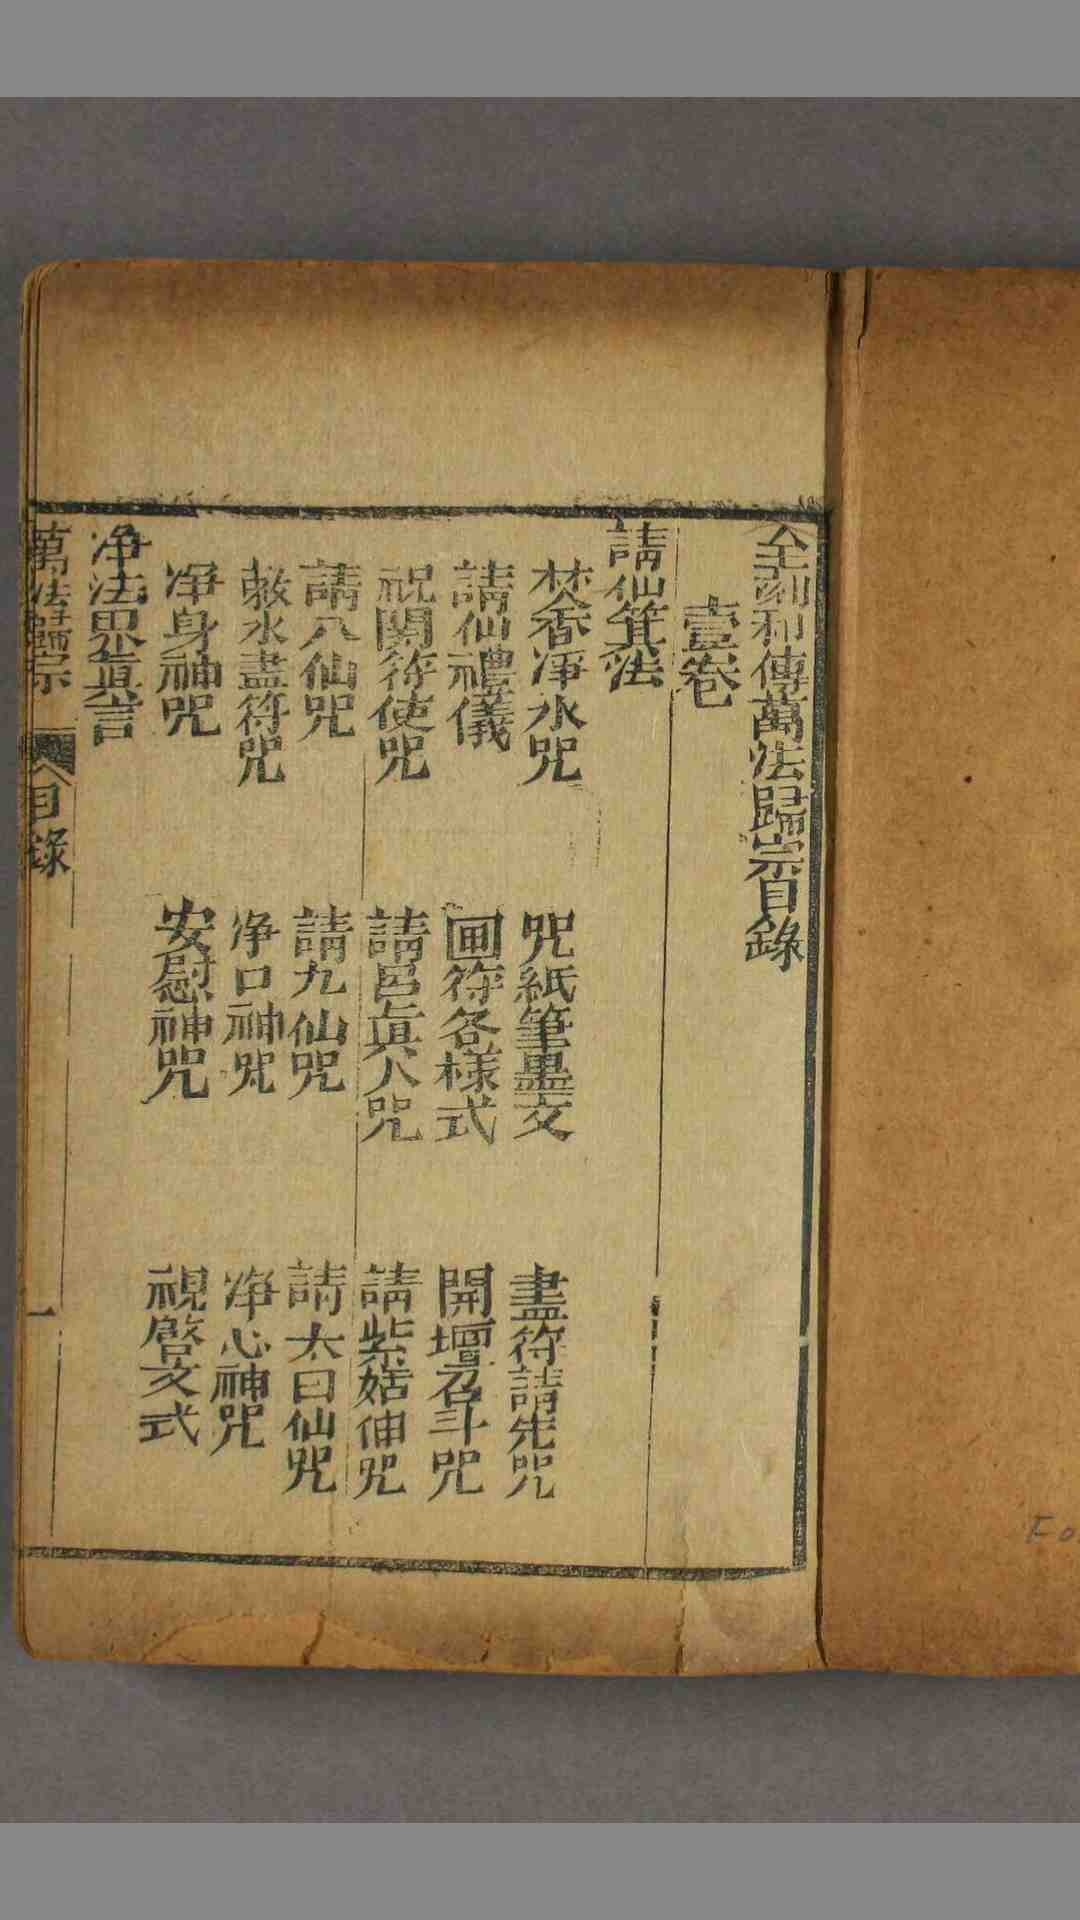 全刻和傳萬法歸宗目錄
壹卷
請仙箕法
焚香淨水咒 咒紙筆墨文 畫符請先咒
請仙禮儀 画符各樣式 開壇召斗咒
祝關符使咒 請呂眞人咒 請紫姑伸咒
請八仙咒 請九仙咒 請太曰仙咒
敕水畫符咒 净口神咒 净心神咒
净身神咒 安慰神咒 視啓文式
净法界真言
萬法歸宗 目錄 一